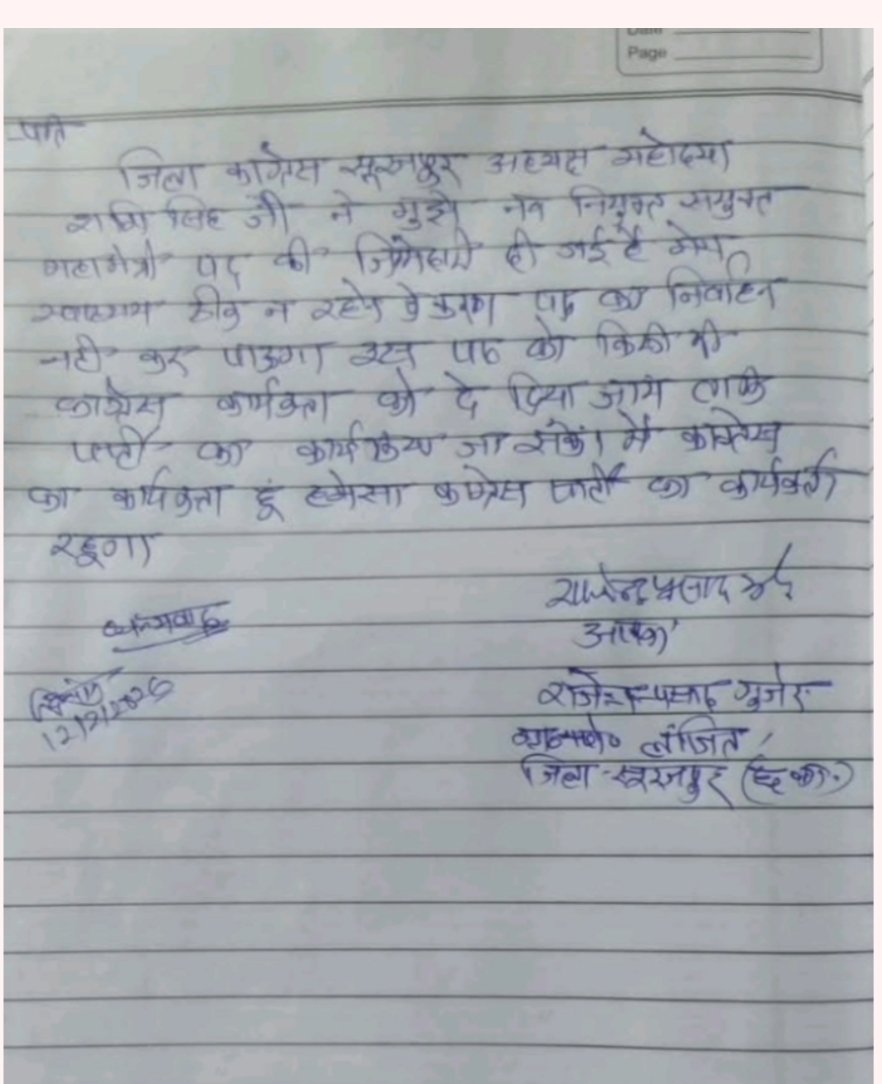 Date
Page
प्रति
जिला कांग्रेस सूरजपुर अध्यक्ष महोदया
शशि सिंह जी ने मुझे नव नियुक्त सयुक्त
महामंत्री पद की जिम्मेदारी दी गई है मेरा
स्वास्थ्य ठीक न रहने के कारण पद का निर्वाहन
नही कर पाऊगा इस पद को किसी भी
कांग्रेस कार्यकर्ता को दे दिया जाय ताकि
पार्टी का कार्य किया जा सके। मैं कांग्रेस
का कार्यकर्ता हूं हमेसा कांग्रेस पार्टी का कार्यकर्ता
रहूगा
राजेन्द्र प्रसाद
धन्यवाद
आपका
दिनांक
12/2/2026
राजेन्द्र प्रसाद गुर्जर
लांजित
जिला-सूरजपुर (छ०ग०)